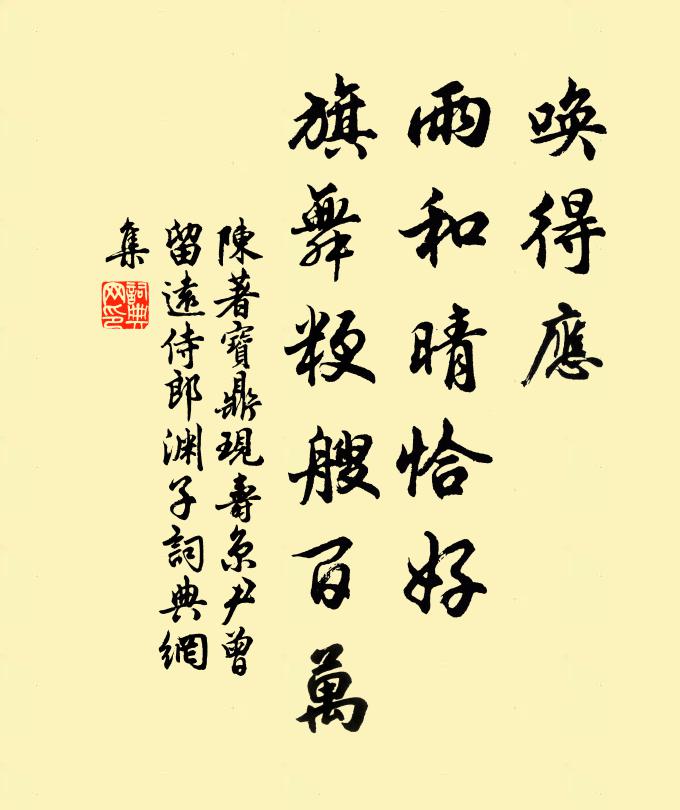 喚得應
雨和晴恰好
旗舞粳艘百萬
陳著寶鼎現壽京尹曾
留遠侍郎淵子詞典網
集
詞典
网印